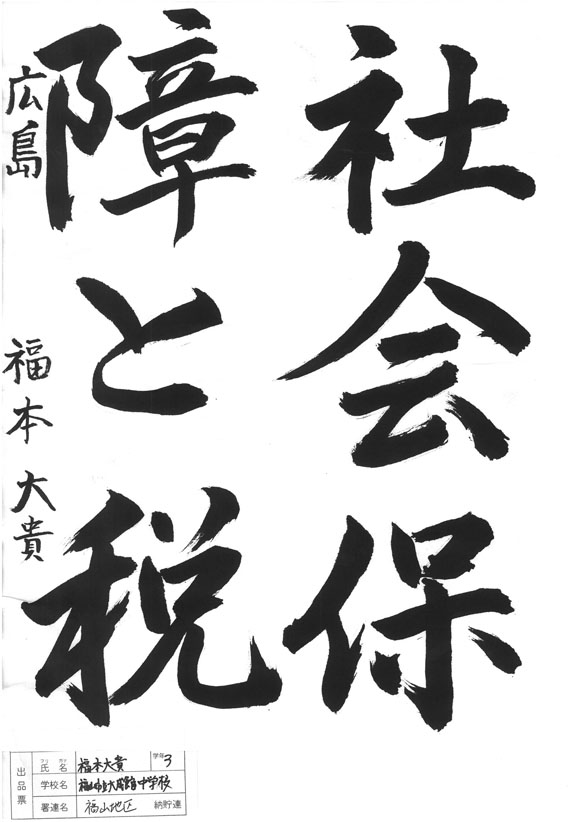 社会保
障と税
広島 福本大貴
出品票
フリ ガナ
氏名 福本大貴 学年 3
学校名 福山市立大成館中学校
署連名 福山地区 納貯連